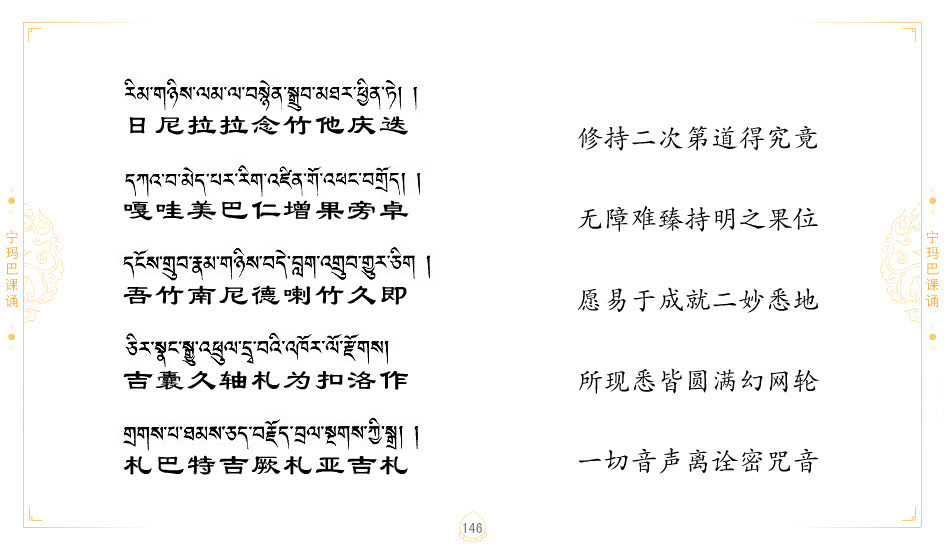 རིམ་གཉིས་ལམ་ལ་བསྙེན་སྒྲུབ་མཐར་ཕྱིན་ཏེ། །
日尼拉拉念竹他庆迭
དཀའ་བ་མེད་པར་རིག་འཛིན་གོ་འཕང་བགྲོད། །
嘎哇美巴仁增果旁卓
དངོས་གྲུབ་རྣམ་གཉིས་བདེ་བླག་འགྲུབ་གྱུར་ཅིག །
吾竹南尼德喇竹久即
ཅིར་སྣང་སྒྱུ་འཕྲུལ་དྲྭ་བའི་འཁོར་ལོ་རྫོགས།
吉囊久轴札为扣洛作
གྲགས་པ་ཐམས་ཅད་བརྗོད་བྲལ་སྔགས་ཀྱི་སྒྲ། །
札巴特吉厥札亚吉札
修持二次第道得究竟
无障难臻持明之果位
愿易于成就二妙悉地
所现悉皆圆满幻网轮
一切音声离诠密咒音
宁玛巴课诵
宁玛巴课诵
146